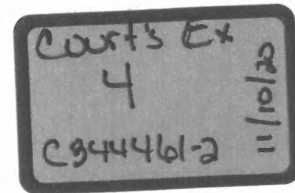 Court's Ex
4
C344461-2
11/10/20